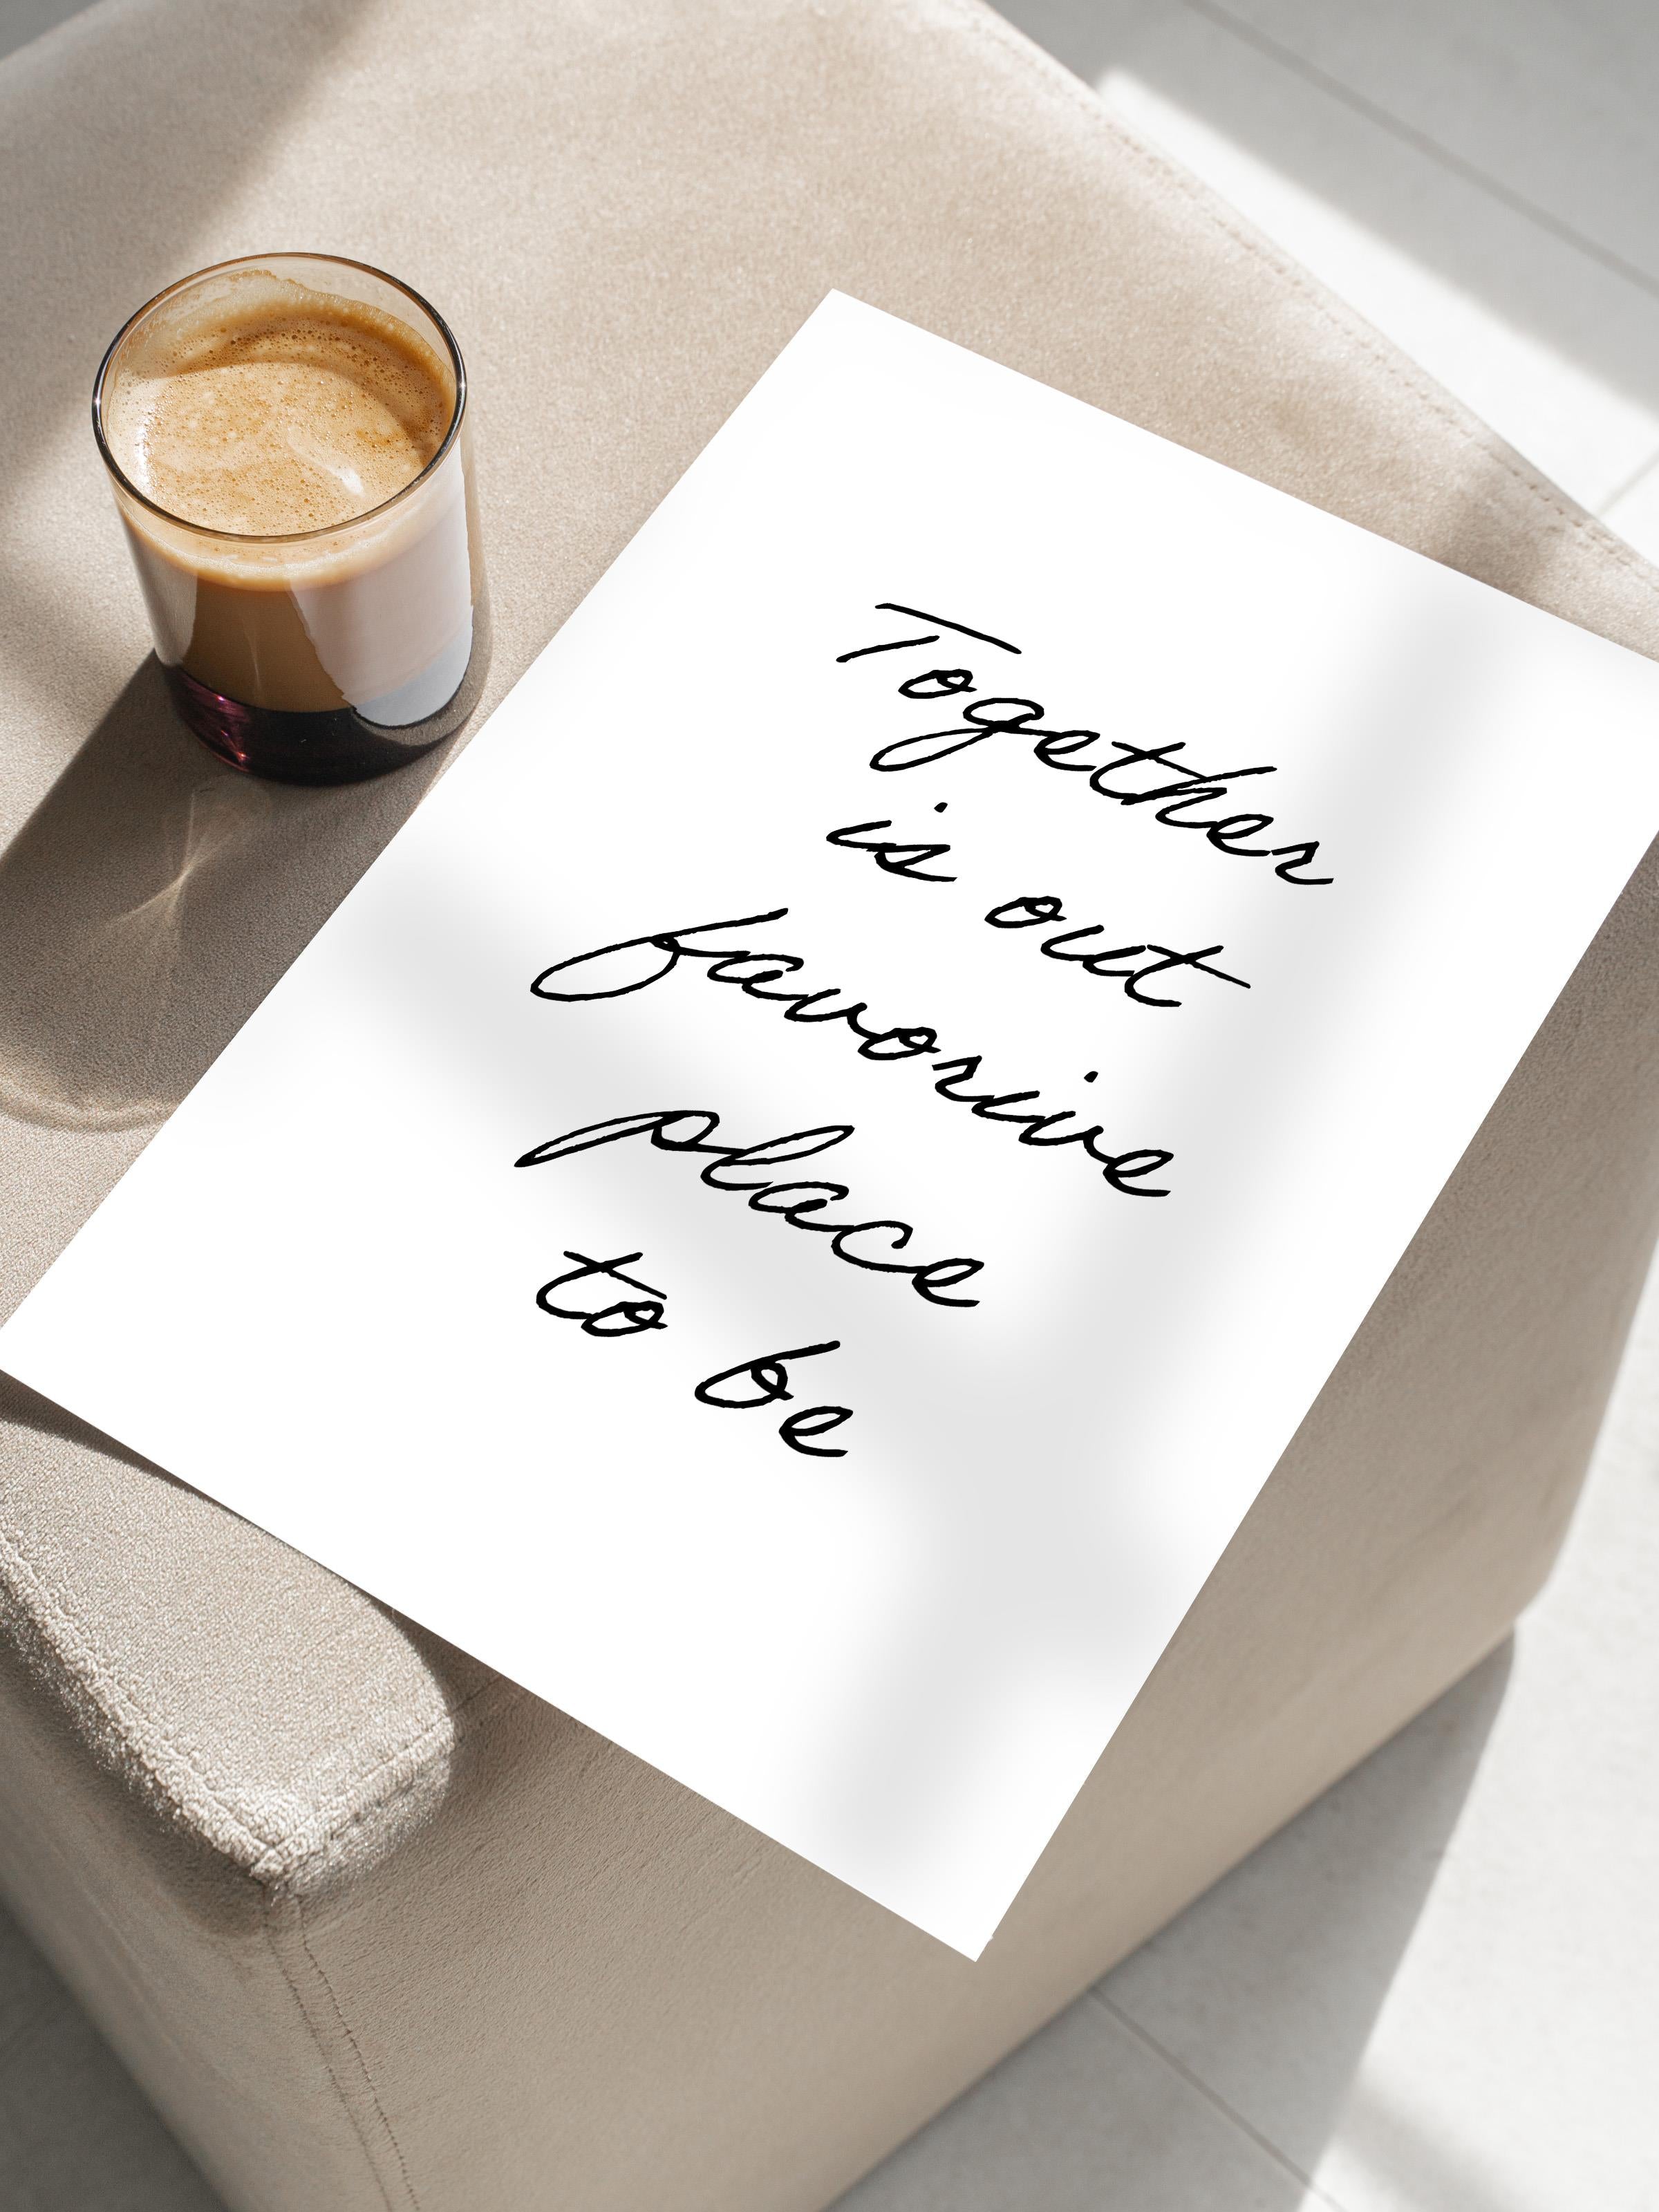 Together
is out
favorive
place
to be